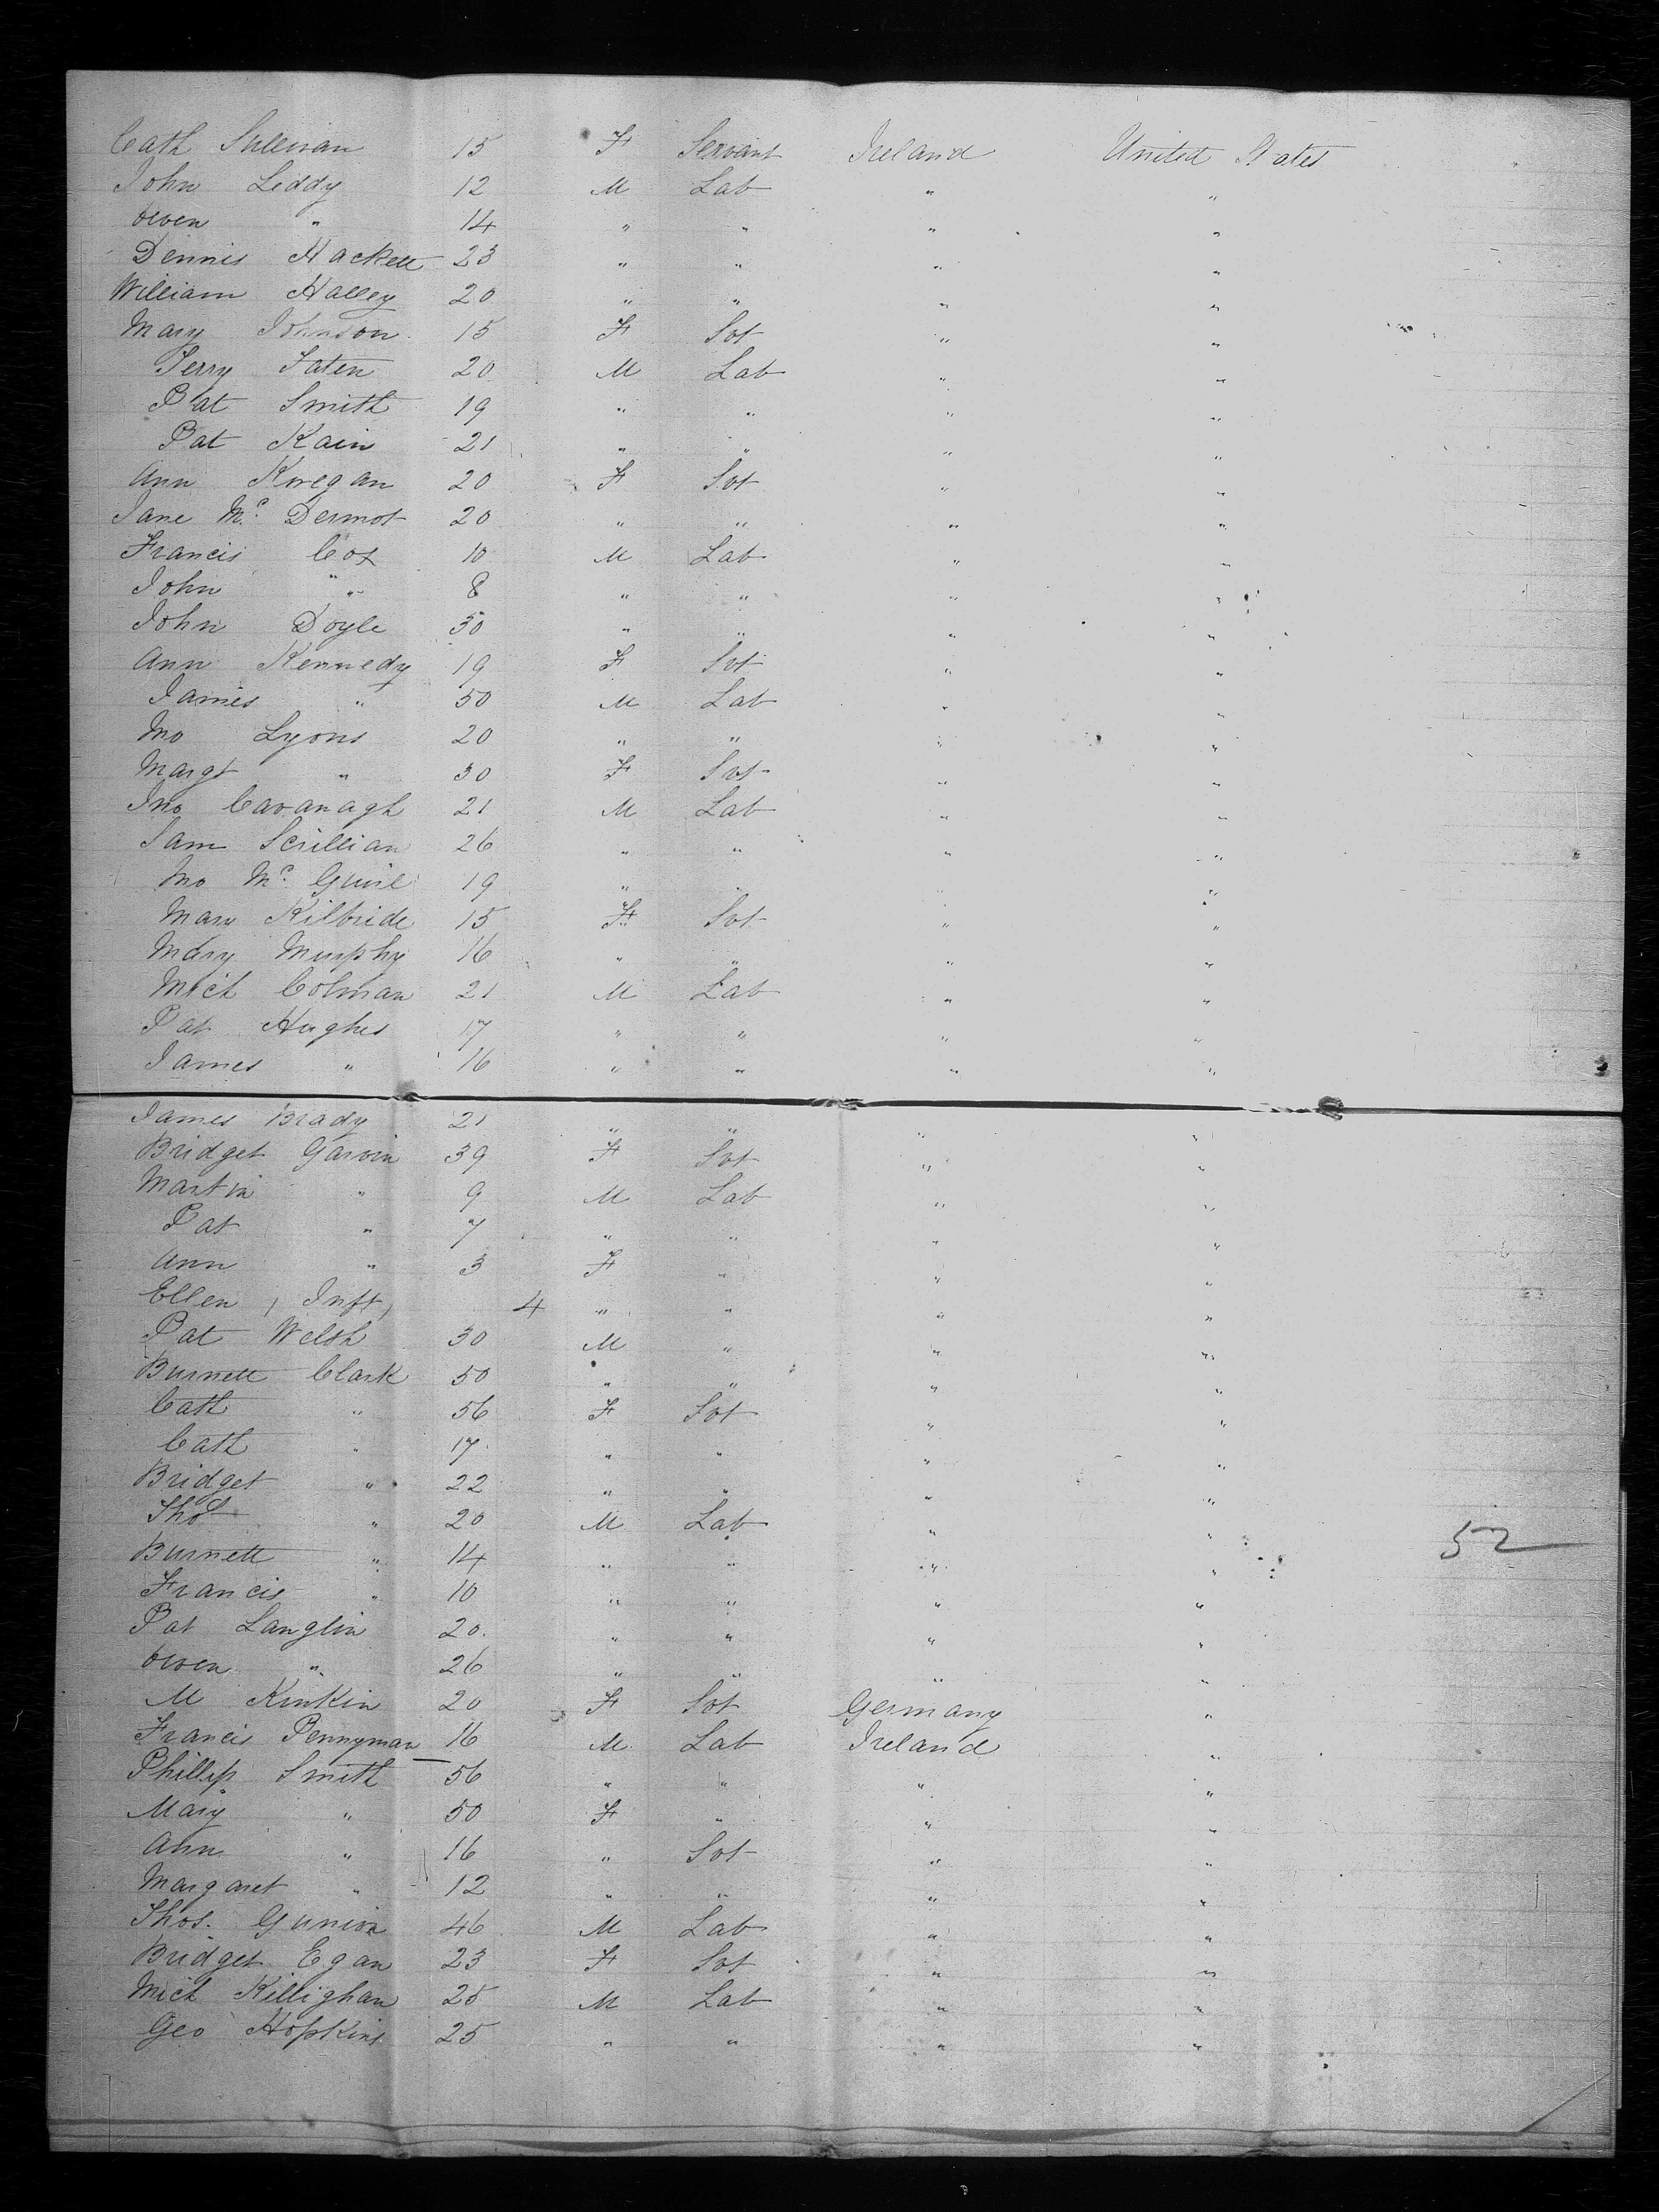 Cath Sullivan 15 F Servant Ireland United States
John Leddy 12 M Lab " "
Owen " 14 " " " "
Dennis Hackett 23 " " " "
William Halley 20 " " " "
Mary Johnson 15 F Svt " "
Terry Faten 20 M Lab " "
Pat Smith 19 " " " "
Pat Kain 21 " " " "
Ann Kregan 20 F Svt " "
Jane Mc. Dermot 20 " " " "
Francis Cox 10 M Lab " "
John " 8 " " " "
John Doyle 50 " " " "
Ann Kennedy 19 F Svt " "
James " 50 M Lab " "
Mo Lyons 20 " " " "
Margt " 30 F Svt " "
Jno Cavanagh 21 M Lab " "
Sam Scullian 26 " " " "
Mo Mc. Guire 19 " " " "
Mary Kilbride 15 F Svt " "
Mary Murphy 16 " " " "
Mich Colman 21 M Lab " "
Pat Hughes 17 " " " "
James " 16 " " " "
James Brady 21 " " " "
Bridget Garvin 39 F Svt " "
Martin " 9 M Lab " "
Pat " 7 " " " "
Ann " 3 F " " "
Ellen (Inft) 4 " " " "
Pat Welsh 30 M " " "
Burnett Clark 50 " " " "
Cath " 56 F Svt " "
Cath " 17 " " " "
Bridget " 22 " " " "
Thos " 20 M Lab " "
52
Burnett " 14 " " " "
Francis " 10 " " " "
Pat Langlin 20 " " " "
Owen " 26 " " " "
M Kinkin 20 F Svt Germany "
Francis Pennyman 16 M Lab Ireland "
Phillip Smith 56 " " " "
Mary " 50 F " " "
Ann " 16 " Svt " "
Margaret " 12 " " " "
Thos. Gunion 46 M Lab " "
Bridget Egan 23 F Svt " "
Mich Killighan 25 M Lab " "
Geo Hopkins 25 " " " "